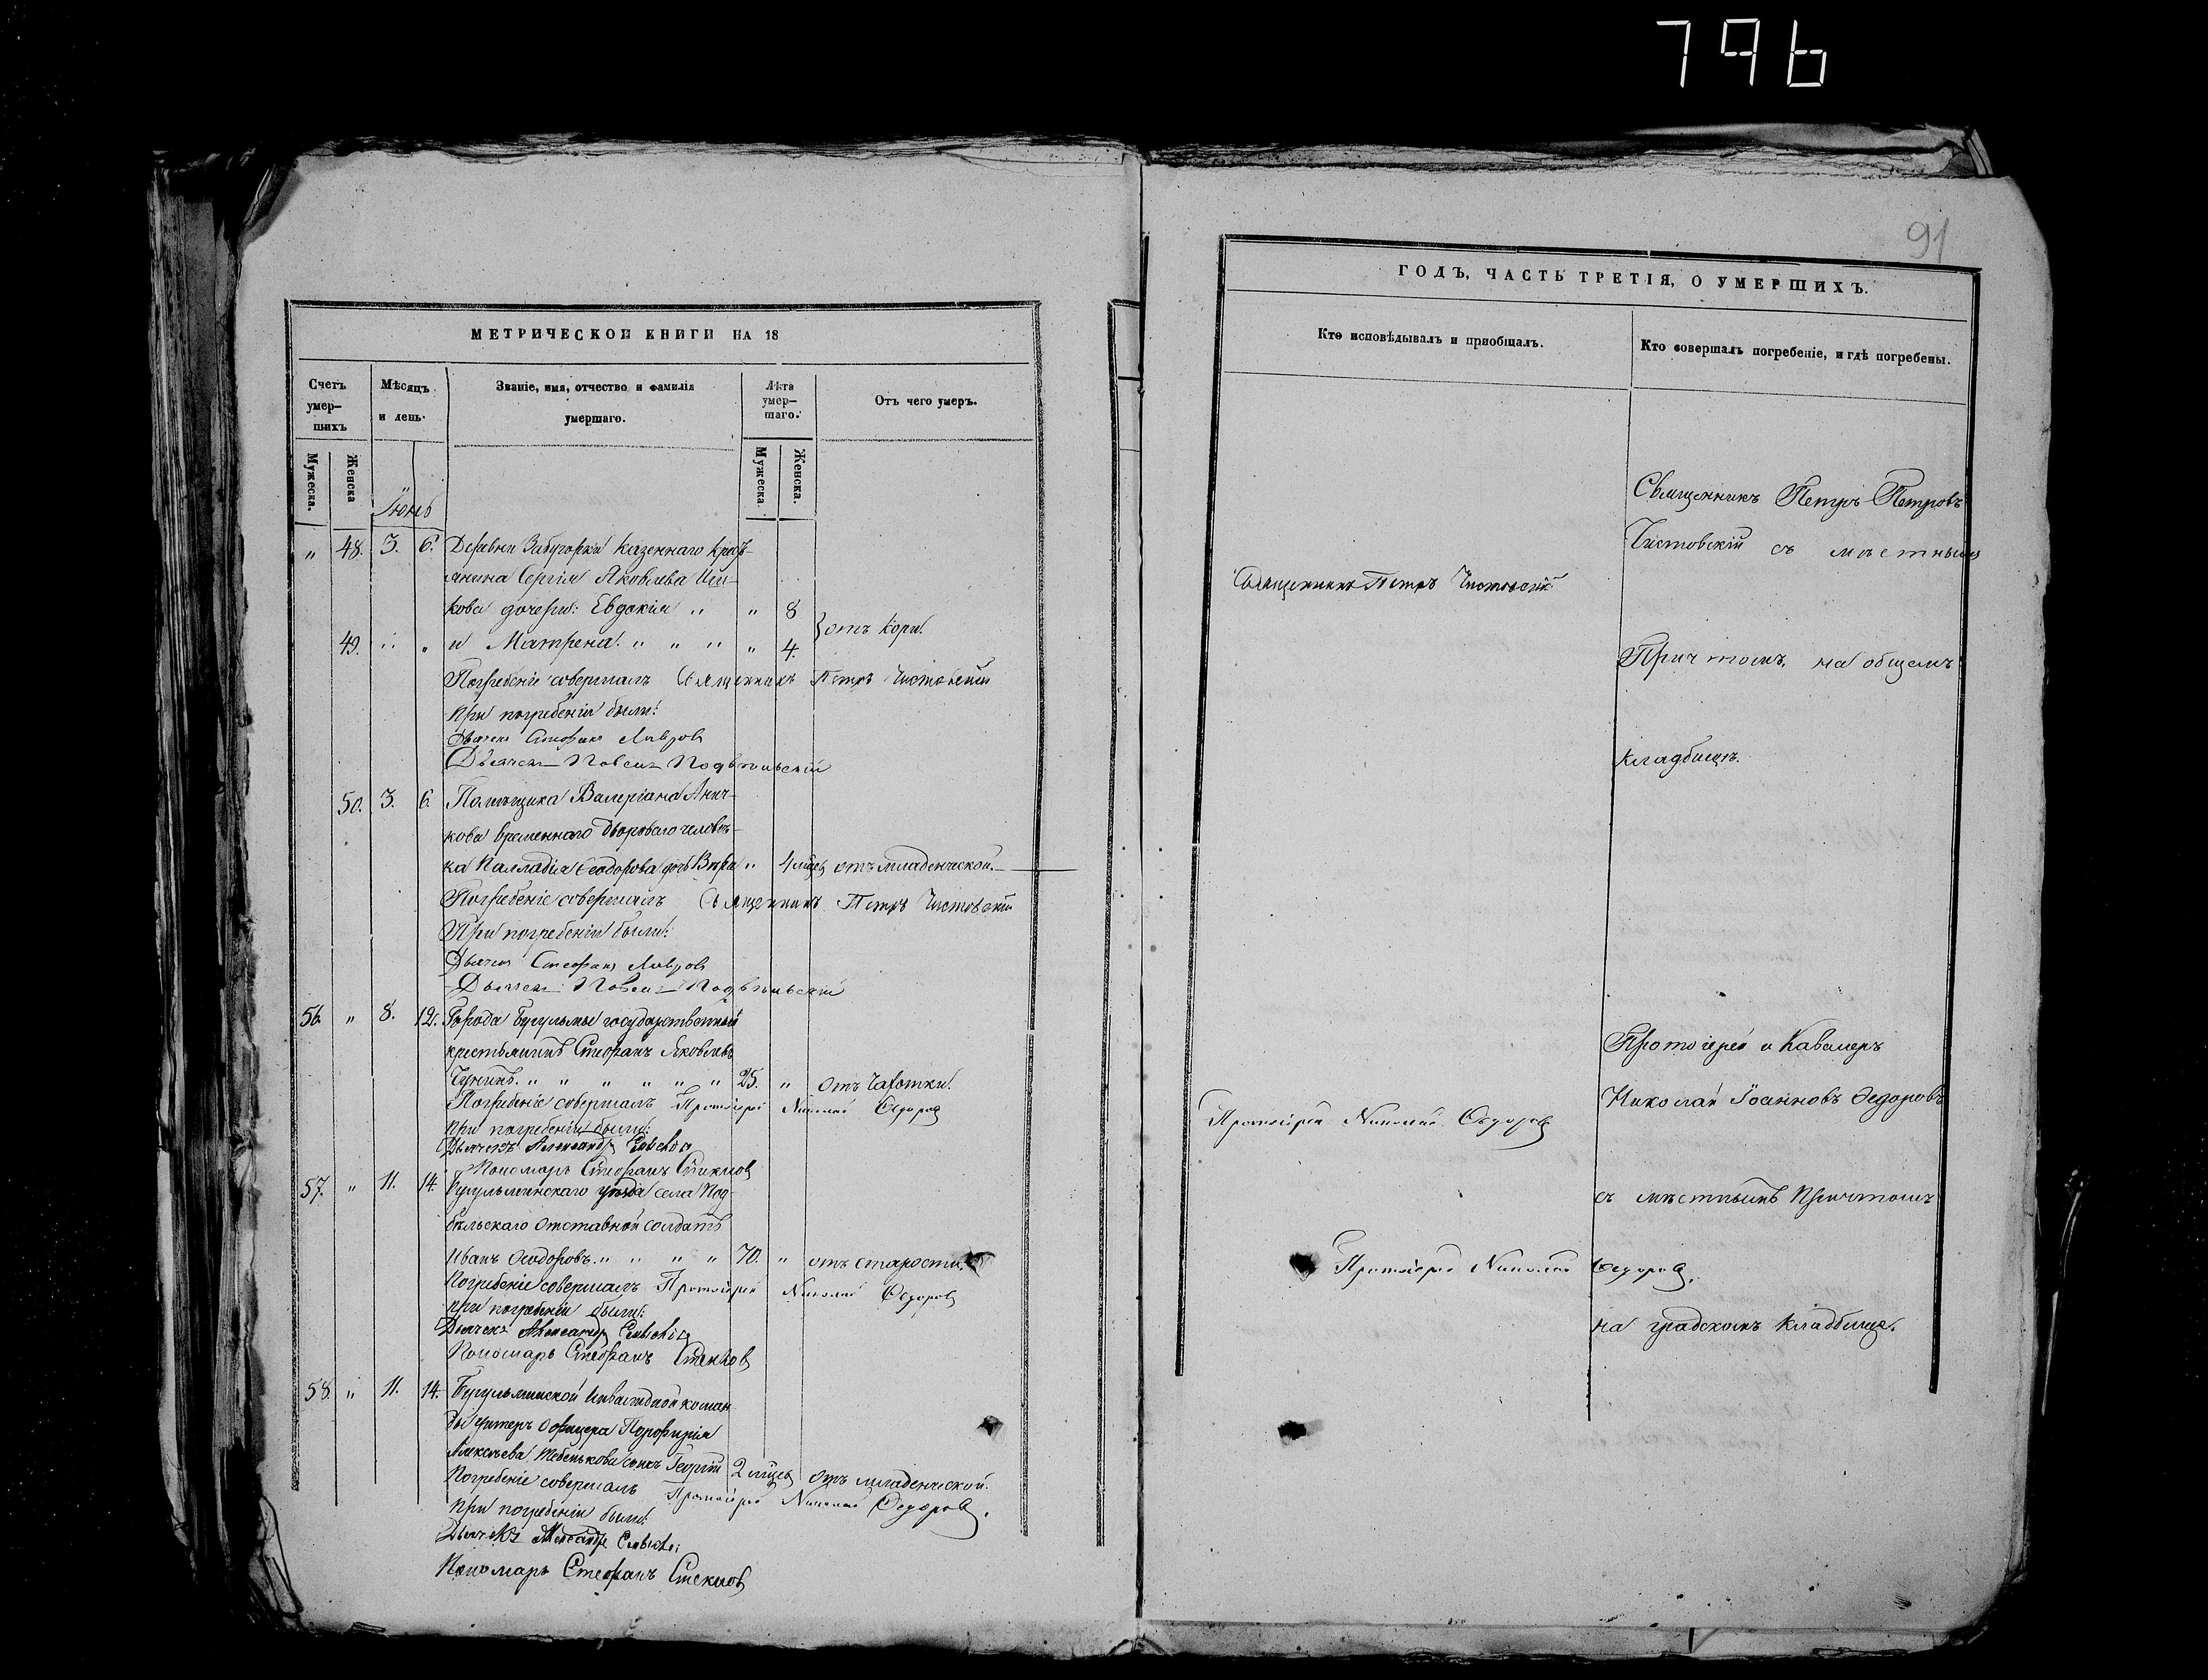 796
91
МЕТРИЧЕСКОЙ КНИГИ НА 18
Счетъ умер-шихъ
Мѣсяцъ и день.
Званіе, имя, отчество и фамилія умершаго.
Лѣта умер-шаго.
Отъ чего умеръ.
Мужеска.
Женска
Мужеска.
Женска.
Іюнь
„ 48. 3. 6. Деревни Забугорки казеннаго кресть-
янина Сергія Яковлева
кова дочери: Евдокія „ „ 8
49. „ „ и Матрена. „ „ „ „ 4. } отъ кори.
Погребеніе совершалъ Священникъ Петръ Чистовскій
При погребеніи были:
Дьячекъ Стефанъ Лавровъ
Дьячекъ Подбѣльскій
50. 3. 6. Помѣщика Валеріана Анич-
кова временнаго двороваго человѣ-
ка Палладія Ѳеодорова дочь Вѣра „ 4 мѣсц. отъ младенческой.
Погребеніе совершалъ Священникъ Петръ Чистовскій
При погребеніи были:
Дьячекъ Стефанъ Лавровъ
Дьячекъ Подбѣльскій
56. „ 8. 12. Города Бугульмы государственный
крестьянинъ Стефанъ Яковлевъ
„ „ „ „ „ „ 25. „ отъ чахотки.
Погребеніе совершалъ Протоіерей Николай Ѳедоровъ
при погребеніи были:
Дьячекъ Александръ
Пономарь Стефанъ
57. „ 11. 14. Бугульминскаго уѣзда села Под-
бѣльскаго отставной солдатъ
Иванъ Ѳеодоровъ. „ „ „ „ 70. „ отъ старости.
Погребеніе совершалъ Протоіерей Николай Ѳедоровъ
при погребеніи были:
Дьячекъ Александръ
Пономарь Стефанъ
58. „ 11. 14. Бугульминской Инвалидной коман
ды унтеръ офицера Порфирія
Алексѣева Тебенькова сынъ Георгій 2 мѣсц. отъ младенческой.
Погребеніе совершалъ Протоіерей Николай Ѳедоровъ.
При погребеніи были:
Дьячекъ Александръ
Пономарь Стефанъ
ГОДЪ, ЧАСТЬ ТРЕТІЯ, О УМЕРШИХЪ.
Кто исповѣдывалъ и пріобщалъ.
Кто совершалъ погребеніе, и гдѣ погребены.
Священникъ Петръ Чистовскій
Протоіерей Николай Ѳедоровъ
Протоіерей Николай Ѳедоровъ.
Священникъ Петръ Петровъ
Чистовскій съ мѣстнымъ
Причтомъ. на общемъ
кладбищѣ.
Протоіерей и Кавалеръ
Николай Іоанновъ Ѳедоровъ
съ мѣстнымъ Причтомъ
на градскомъ кладбище.